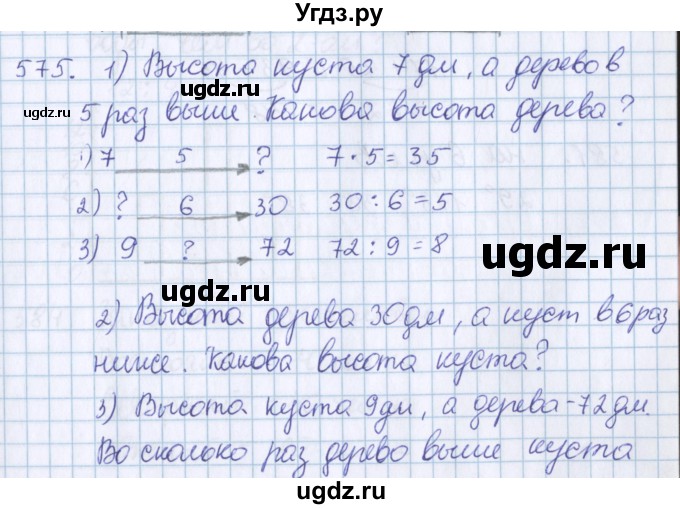 Угдз.ру
575. 1) Высота куста 7 дм, а дерево в
5 раз выше. Какова высота дерева?
1) 7 5 ? 7 · 5 = 35
2) ? 6 30 30 : 6 = 5
3) 9 ? 72 72 : 9 = 8
2) Высота дерева 30 дм, а куст в 6 раз
ниже. Какова высота куста?
3) Высота куста 9 дм, а дерева - 72 дм.
Во сколько раз дерево выше куста
ugdz.ru
ugdz.ru
ugdz.ru
ugdz.ru
ugdz.ru
ugdz.ru
ugdz.ru
ugdz.ru